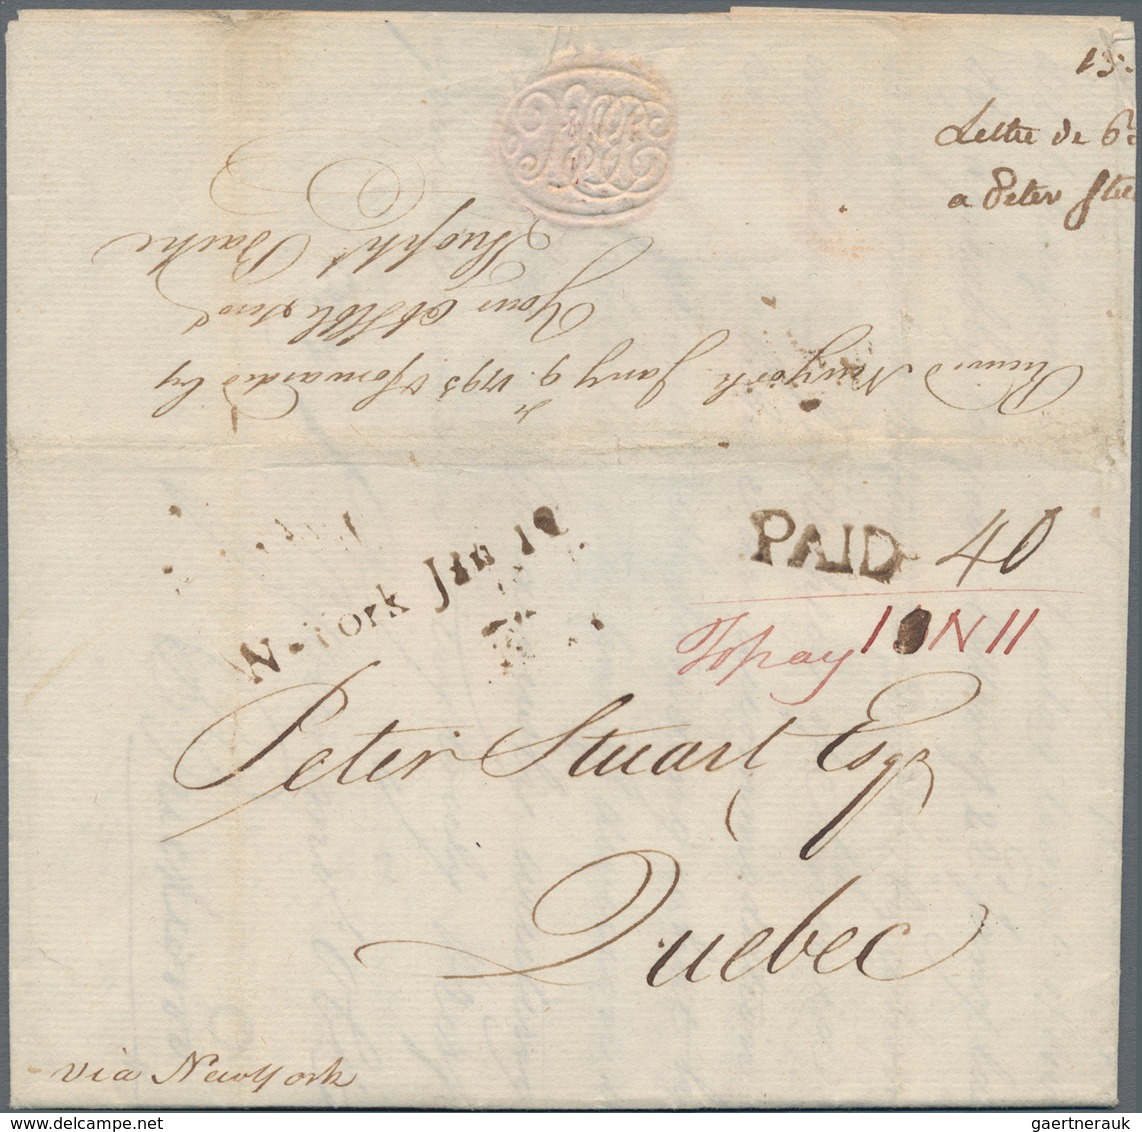 13
Lettre de
a Peter Stu
Newyork Jany 9. 1793 & forwarded by
Your Ob. Hble Serv.t
Theoph.t Bache
N-York Jan 10
PAID 40
To pay 1 N 11
Peter Stuart Esqr
Quebec
via Newyork
gaertnerauk